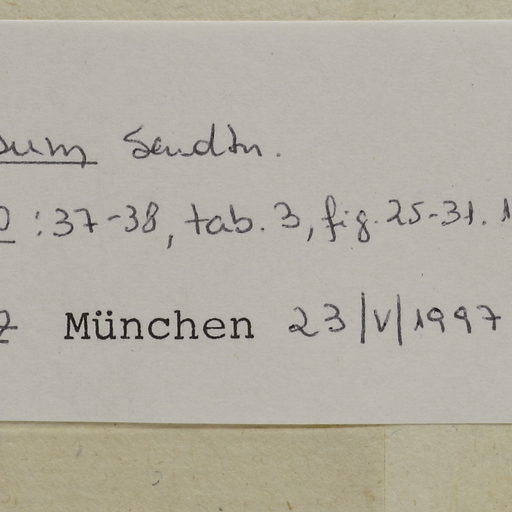 Sendtn.
: 37-38, tab. 3, fig. 25-31. 1
München 23/V/1997